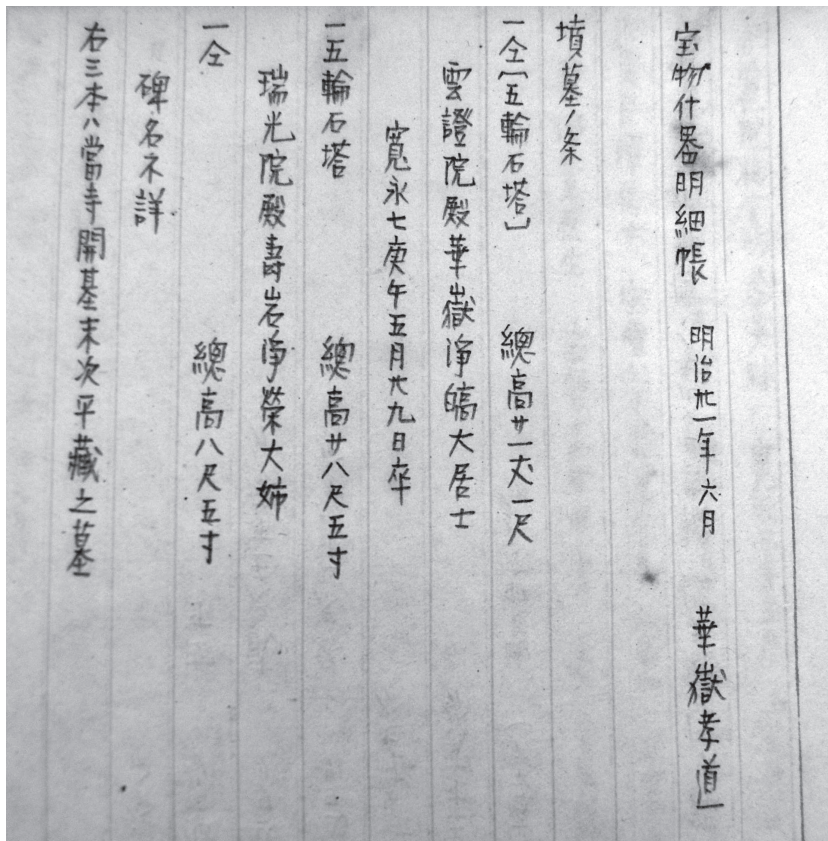 宝物什器明細帳 明治卅一年六月 華嶽孝道
墳墓ノ条
一仝〔五輪石塔〕 總高廿一丈一尺
雲證院殿華嶽淨皜大居士
寛永七庚午五月廿九日卒
一五輪石塔 總高廿八尺五寸
瑞光院殿壽岩淨榮大姉
一仝 總高八尺五寸
碑名不詳
右三本ハ當寺開基末次平藏之墓